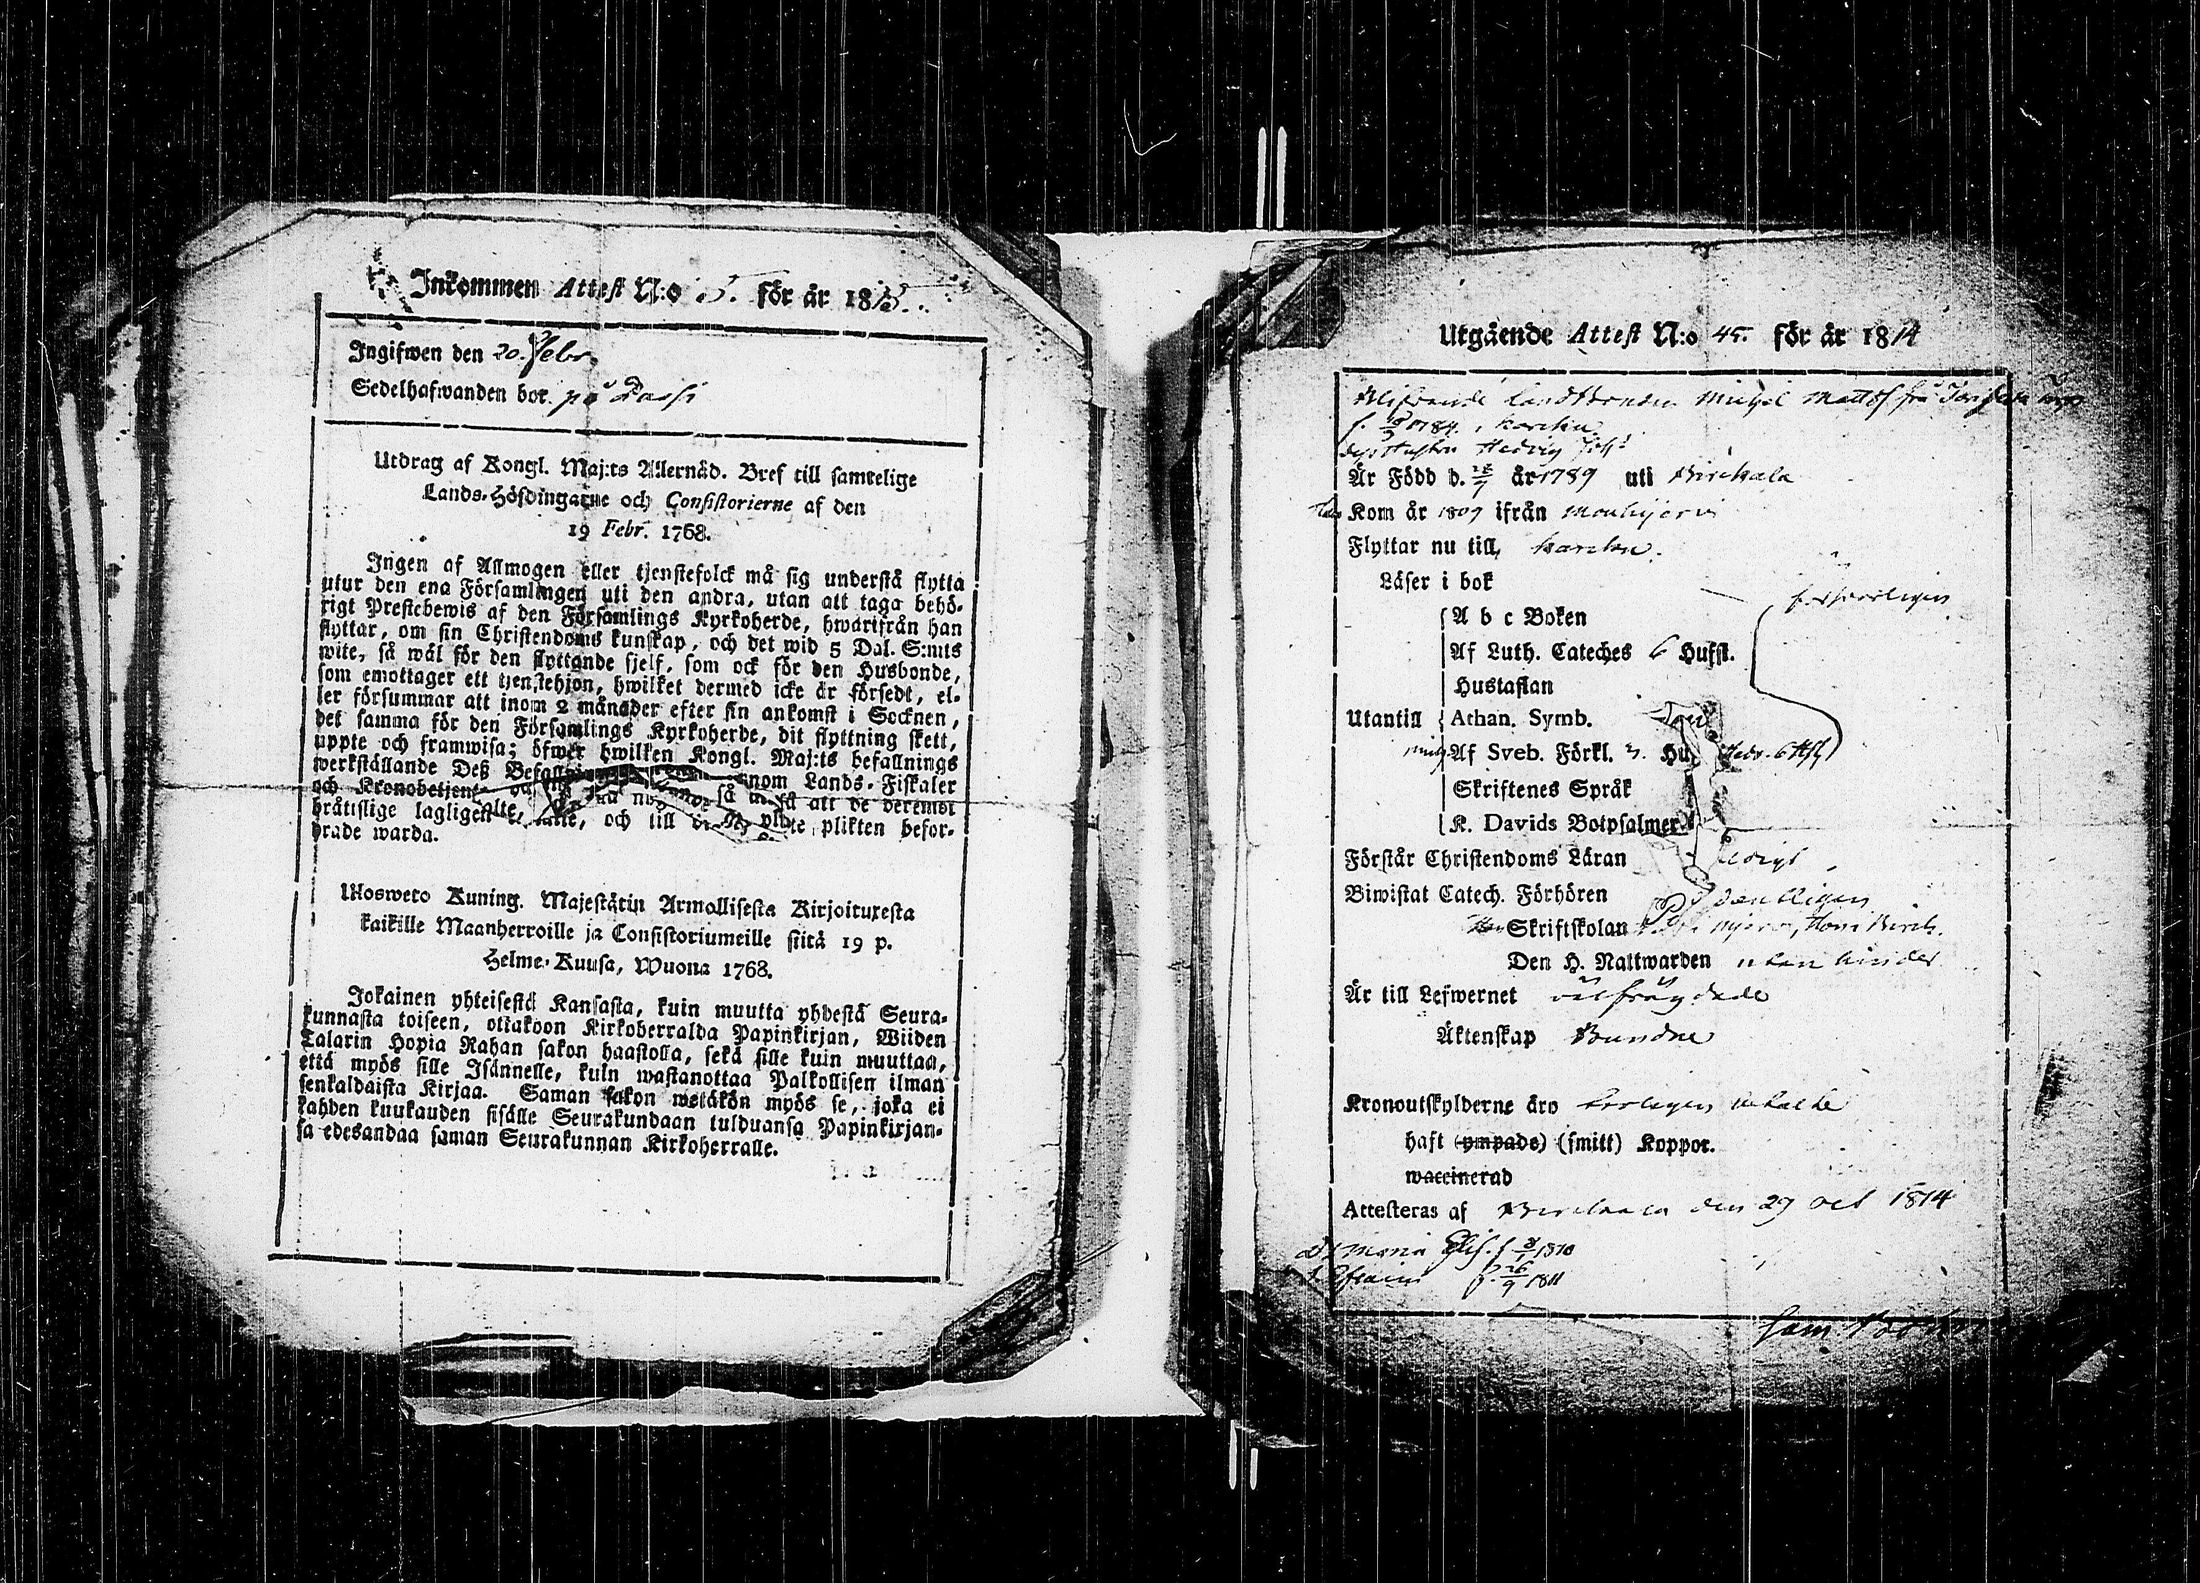 Inkommen Attest N:o 5. för år 1815.
Ingifwen den 20. Febr.
Sedelhafwanden bor på
Utdrag af Kongl. Maj:ts Allernåd. Bref till samtelige
Lands-Höfdingarne och Consistorierne af den
19 Febr. 1768.
Ingen af Allmogen eller tjenstefolck må sig understå flytta
utur den ena Församlingen uti den andra, utan att taga behö-
rigt Prestebewis af den Församlings Kyrkoherde, hwarifrån han
flyttar, om sin Christendoms kunskap, och det wid 5 Dal. S:mts
wite, så wäl för den flyttande sjelf, som ock för den Husbonde,
som emottager ett tjenstehjon, hwilket dermed icke är försedt, el-
ler försummar att inom 2 månader efter sin ankomst i Socknen,
det samma för den Församlings Kyrkoherde, dit flyttning skett,
uppte och framwisa; öfwer hwilken Kongl. Maj:ts befallnings
werkställande Deß inom Lands-Fiskaler
och Kronobetjent så att de deremot
bråtislige lagligen och till plikten befor-
drade warda.
Ulosweto Kuning. Majestätin Armollisesta Kirjoituxesta
kaikille Maanherroille ja Consistoriumeille siitä 19 p.
Helme-Kuusa, Wuona 1768.
Jokainen yhteisestä Kansasta, kuin muutta yhdestä Seura-
kunnasta toiseen, ottakoon Kirkoherralda Papinkirjan, Wiiden
Talarin Hopia Rahan sakon haastolla, sekä sille kuin muuttaa,
että myös sille Isännelle, kuin wastanottaa Palkollisen ilman
senkaldaista Kirjaa. Saman sakon wetäkön myös se, joka ei
kahden kuukauden sisälle Seurakundaan tulduansa Papinkirjan-
sa edesandaa saman Seurakunnan Kirkoherralle.
Utgående Attest N:o 45. för år 1814
Blifvande Landtbonden Michel Matts fr
f. 1784, i Karcku
dess Hustru Hedvig Joh:
Är Född d. år 1789 uti Birckala
Kom år 1809 ifrån Mouhijervi
Flyttar nu till, Karcku.
Läser i bok försvarligen
A b c Boken
Af Luth. Cateches 6 Hufst.
Hustaflan
Utantill Athan. Symb.
Af Sveb. Förkl. 3. Hu Hedv. 6 Hst
Skriftenes Språk
K. Davids Botpsalmer
Förstår Christendoms Läran
Biwistat Catech. Förhören
Skriftskolan
Den H. Nattwarden utan hinder
Är till Lefwernet välfrägdade
Äktenskap Bundne
Kronoutskylderne äro betalte
haft (ympade) (smitt) Koppor.
waccinerad
Attesteras af Birckala den 29 Oct 1814
Maria Elis. f 1810
Efraim f. 26/9 1811